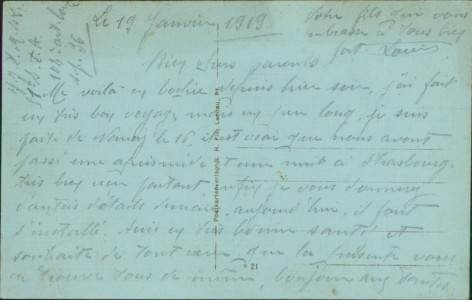 Le 19 Janvier 1919
Votre fils qui vous
embrasse à tous bien
fort Louis
Bien chers parents
Me voilà en bochie depuis hier soir, j'ai fait
un très bon voyage mais un peu long. je suis
parti de Nancy le 16, il est vrai que nous avons
passé une après midi et une nuit à Strasbourg.
très bien vu partout, enfin je vous donnerai
d'autres détails demain, aujourd'hui, il faut
s'installé. Suis en très bonne santé et
souhaite de tout cœur que la présente vous
en trouve tous de même, bonjour aux tantes.
21